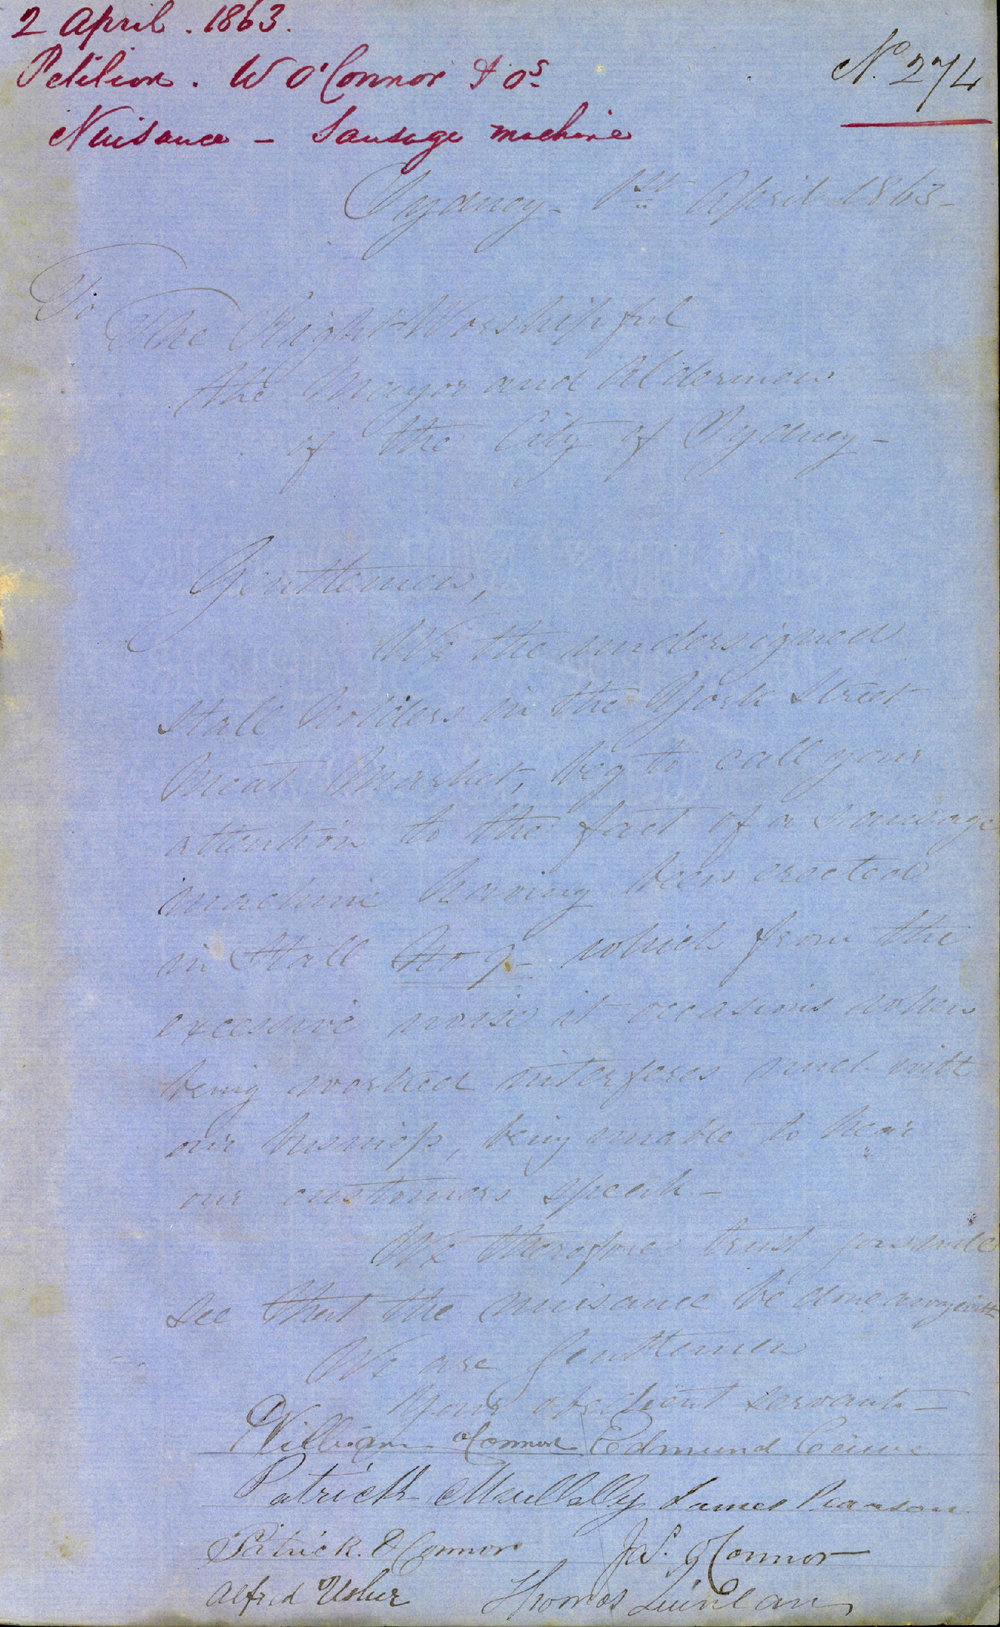 2 April. 1863.
Petition. W O'Connor & Os
Nuisance - Sausage machine
No. 274
Sydney - 1st April 1863 -
To
The Right Worshipful
the Mayor and Aldermen
of the City of Sydney -
Gentlemen,
We the undersigned
Stall holders in the York Street
Meat Market, beg to call your
attention to the fact of a Sausage
machine having been erected
in Stall No 9 which from the
excessive noise it occasions when
being worked interferes much with
our business, being unable to hear
our customers speak -
We therefore trust you will
see that the nuisance be done away with
We are Gentlemen
Your obedient servants -
William O'Connor Edmund
Patrick Mullally James Pearson
Patrick O'Connor Jas. O'Connor
Alfred Usher Thomas Quinlan